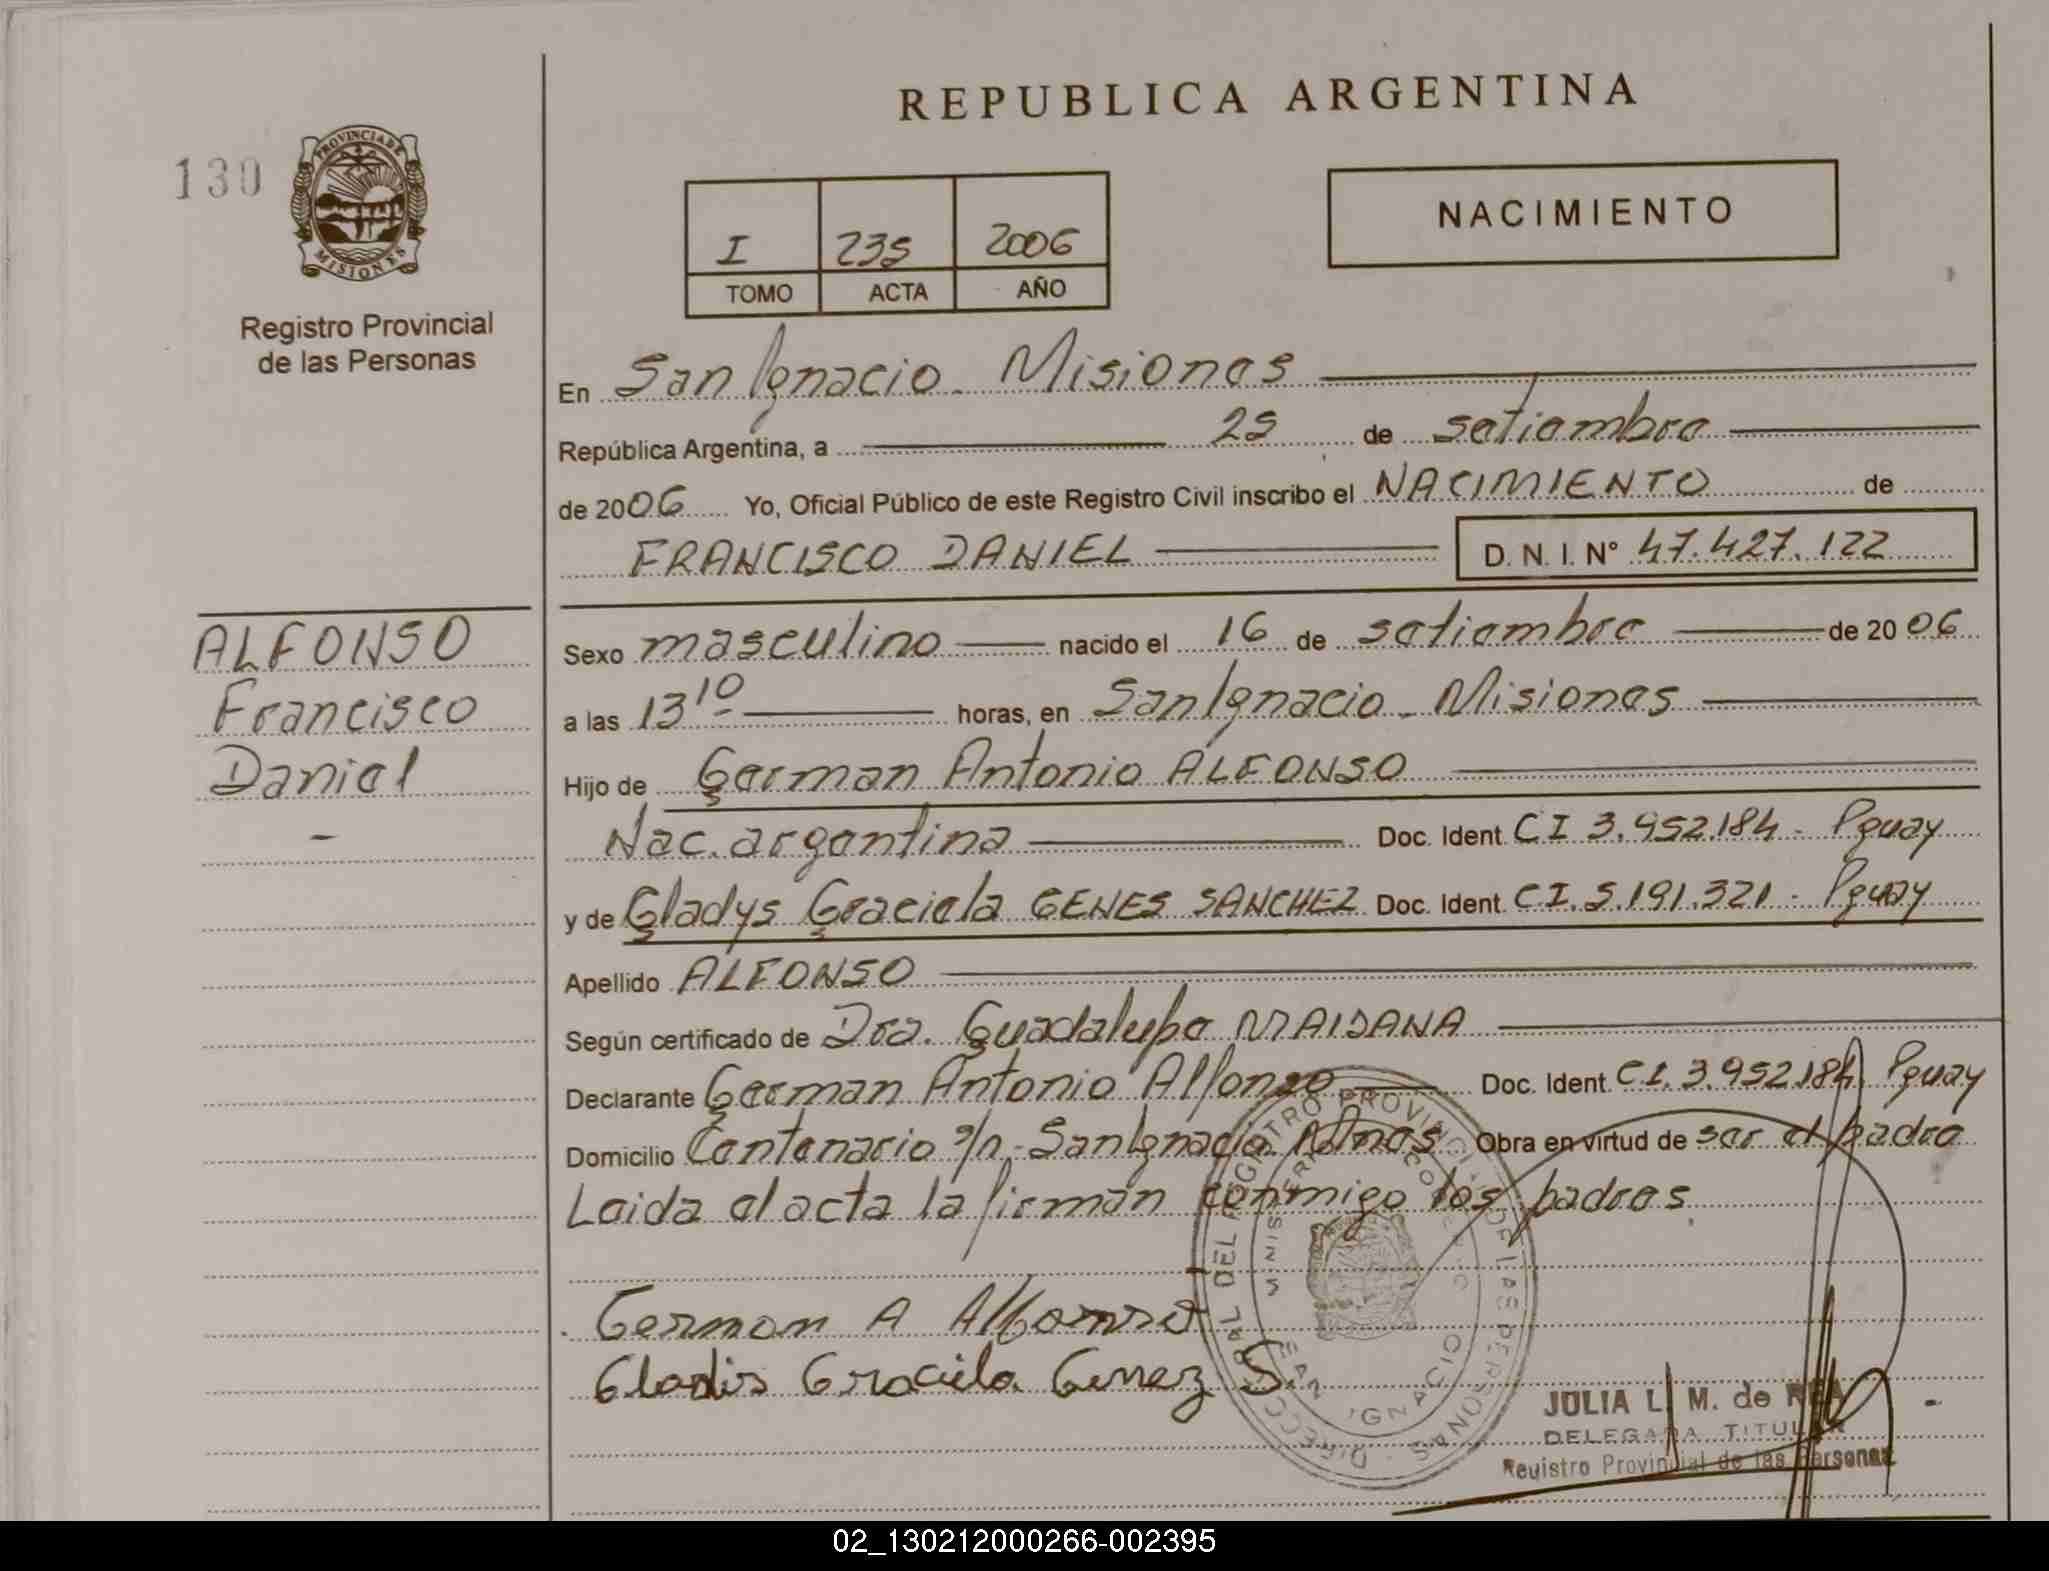 REPUBLICA ARGENTINA
130
PROVINCIA DE
MISIONES
Registro Provincial
de las Personas
I 235 2006
TOMO ACTA AÑO
NACIMIENTO
En San Ignacio - Misiones
República Argentina, a 25 de setiembre
de 2006 Yo, Oficial Público de este Registro Civil inscribo el NACIMIENTO de
FRANCISCO DANIEL D. N. I. Nº 47.427.122
ALFONSO
Francisco
Daniel
-
Sexo masculino nacido el 16 de setiembre de 2006
a las 13 10 horas, en San Ignacio - Misiones
Hijo de German Antonio ALFONSO
Nac. argentina Doc. Ident. CI 3.952.184 - Pguay
y de Gladys Graciela GENES SANCHEZ Doc. Ident. CI. 5.191.321 - Pguay
Apellido ALFONSO
Según certificado de Dra. Guadalupe MAIDANA
Declarante German Antonio Alfonso Doc. Ident. CI. 3.952.184 Pguay
Domicilio Centenario s/n - San Ignacio Mnes Obra en virtud de ser el padre
Leida el acta la firman conmigo los padres
German A Alfonso
Gladis Graciela Genez S.
DIRECCION GRAL DEL REGISTRO PROVINCIAL DE LAS PERSONAS
SAN IGNACIO
JULIA L. M. de REA
DELEGADA TITULAR
Registro Provincial de las Personas
02_130212000266-002395